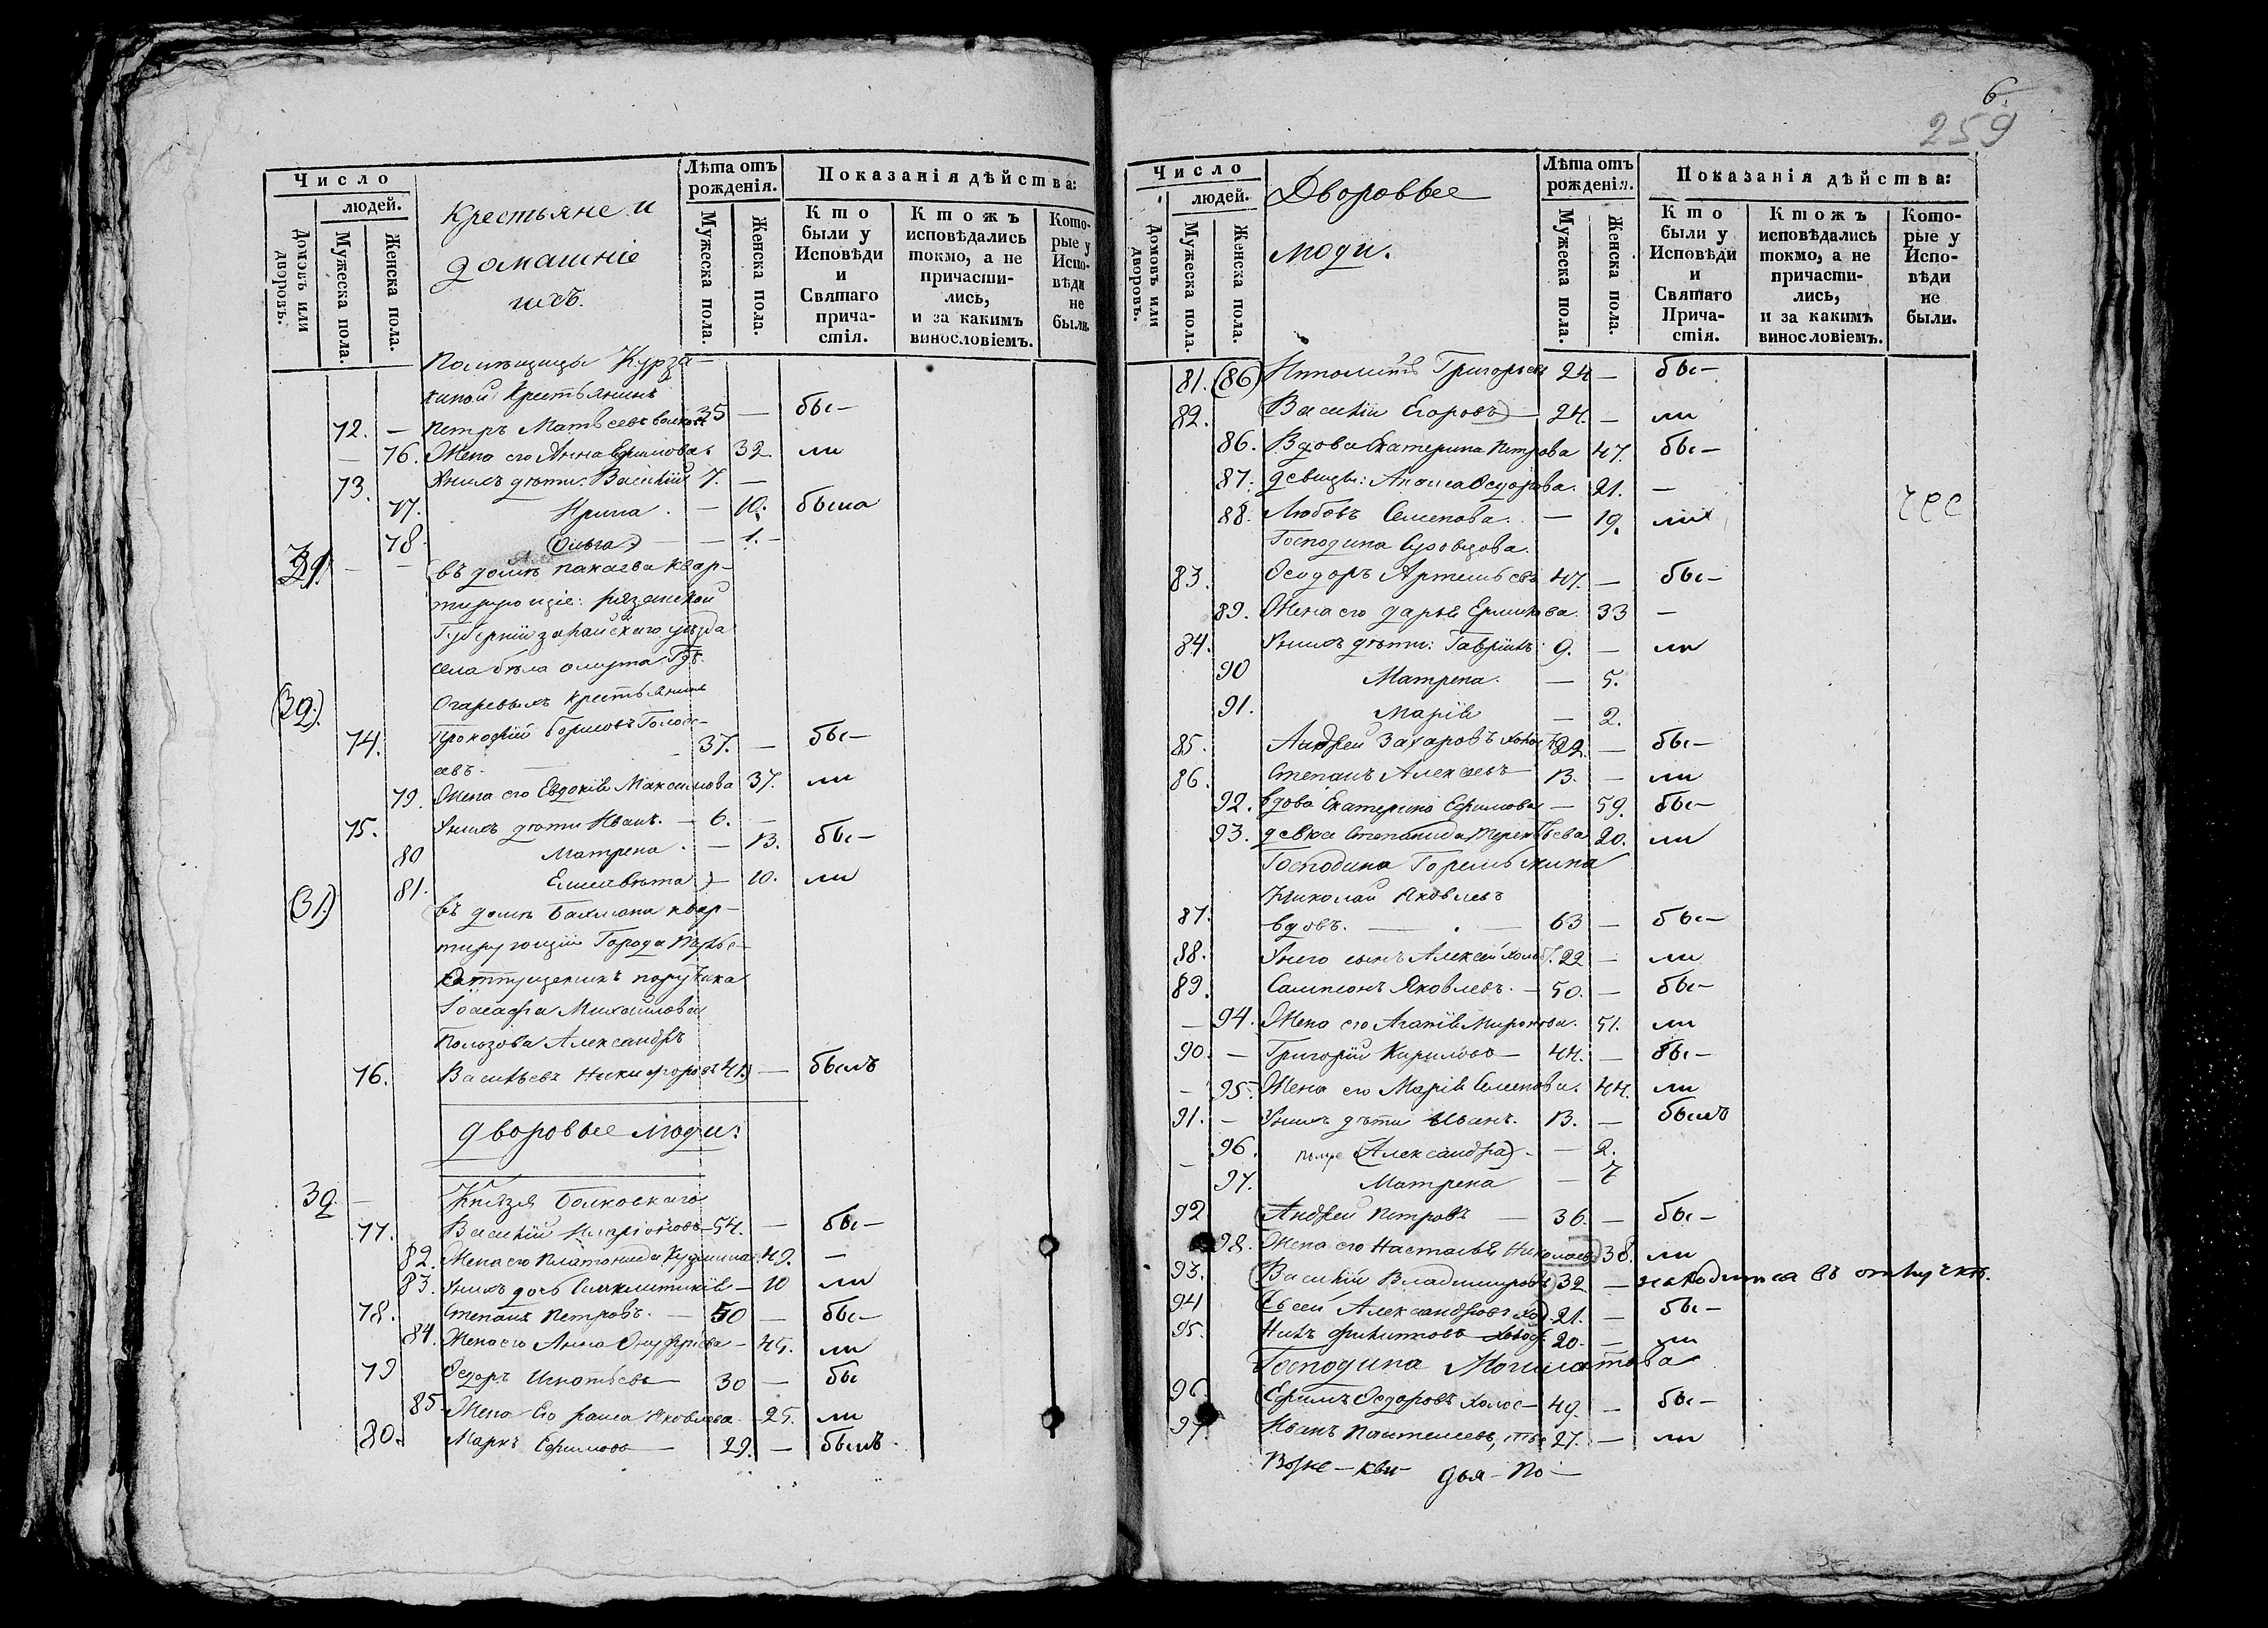 Число
людей.
Домовъ или дворовъ.
Мужеска пола.
Женска пола.
Крестьяне и
домашніе
ихъ.
Лѣта отъ рожденія.
Мужеска пола.
Женска пола.
Показанія дѣйства:
Кто были у Исповѣди и Святаго прича- стія.
Ктожъ исповѣдались токмо, а не причасти- лись, и за какимъ винословіемъ.
Кото- рые у Испо- вѣди не были.
Помѣщицы Курза-
киной Крестьянинъ
72. — Петръ Матвеевъ 35 — бы-
— 76. Жена его Анна Ефимова 32 ли
73. У нихъ дѣти: Василий 7. —
77. Ирина — 10. была
78. (Ольга) — 1. —
въ домѣ квар-
тирующіе: рязанской
Губерніи зарайскаго уѣзда
села бѣла омута Гдъ.
(32.) Огаревыхъ Крестьянинъ
74. Прокофій Борисовъ
евъ. — 37. — бы-
79. Жена его Евдокія Максимова 37. ли
75. У нихъ дѣти Иванъ. — 6. —
80 Матрена — 13. бы-
81. Елисавета — 10. ли
(31.) въ домѣ квар-
тирующій Города
поручика
Іоасафа Михайлова
Александръ
76. Васильевъ Никифоровъ 41 — былъ
Дворовые люди:
32. — Князя
77. Василій Иларіоновъ — 54. — бы-
82. Жена его Платонида Кузмина 49. —
83. У нихъ дочь — 10 ли
78. Степанъ Петровъ. — 50 — бы-
84. Жена его Анна Онуфріева — 45. ли
79 Ѳедоръ Игнатьевъ — 30 — бы
85 Жена Его Яковлева — 25. ли
80. Маркъ Ефимовъ — 29. — былъ
6.
259
Число
людей.
Домовъ или дворовъ.
Мужеска пола.
Женска пола.
Дворовые
люди.
Лѣта отъ рожденія.
Мужеска пола.
Женска пола.
Показанія дѣйства:
Кто были у Исповѣди и Святаго Прича- стія.
Ктожъ исповѣдались токмо, а не причасти- лись, и за какимъ винословіемъ.
Кото- рые у Испо- вѣди не были.
81. (86) Ипполитъ Григорьевъ 24 — бы-
82. Василій Егоровъ — 24. — ли
86. Вдова Екатерина Петрова 47. бы-
87. девицы: Ѳедорова. 21. —
88. Любовь Семенова. — 19. ли
Господина
83. Ѳеодоръ Артемьевъ 47. — бы-
89. Жена его Дарья 33 —
84. У нихъ дѣти: Гавріилъ 9. — ли
90 Матрена. — 5.
91. Марія — 2.
85. Андрей Захаровъ холост 22. — бы-
86. Степанъ Алексеевъ 13. — ли
92. вдова Екатерина Ефимова — 59. бы-
93. девка Степанида Терентьева 20. ли
Господина Горемыкина
Николай Яковлевъ
87. вдовъ. — 63 — бы-
88. У него сынъ Алексей холост. 22 — ли
89. Сампсонъ Яковлевъ. — 50. — бы-
— 94. Жена его Агапія Миронова. 51. ли
90. — Григорій Кириловъ — 44. — бы-
— 95. Жена его Марія Семенова. 44. ли
91. — У нихъ дѣти Иванъ. 13. — былъ
— 96. (Александра) — 2.
97. Матрена — 7
92 Андрей Петровъ — 36. — бы-
98. Жена его Настасья Николаев 38. ли
93. Василій Владимировъ 32 — находится въ отлучкѣ.
94 Евсей Александровъ хол 21. — бы-
95. 20. — ли
Господина
96. Ефимъ Ѳедоровъ холос — 49. — бы-
97. Иванъ Пантелеевъ, 27. — ли